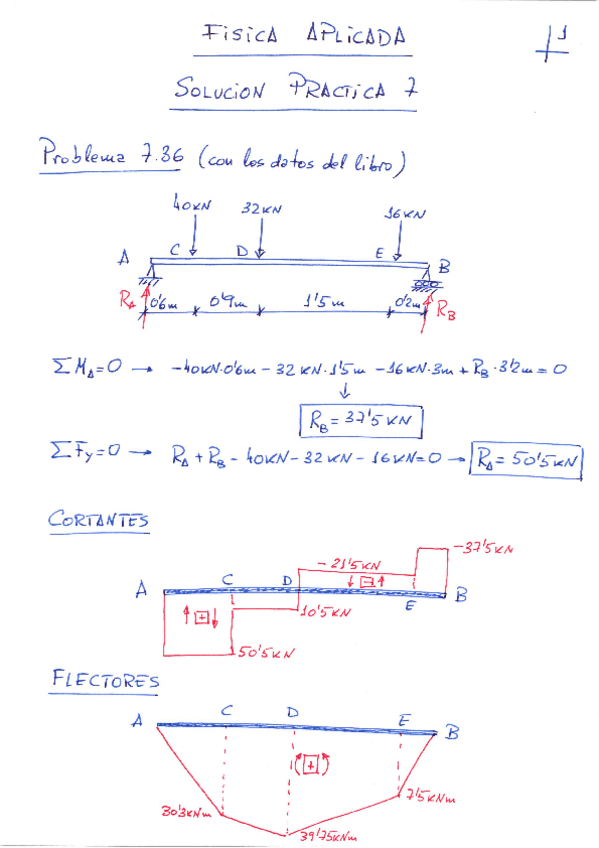 FISICA APLICADA
1
SOLUCION PRACTICA 7
Problema 7.36 (con los datos del libro)
40KN 32KN 16KN
A C D E B
R_A 0'6m 0'9m 1'5m 0'2m R_B
ΣM_A=0 → -40KN·0'6m - 32KN·1'5m - 16KN·3m + R_B·3'2m = 0
↓
R_B = 37'5KN
ΣFy=0 → R_A + R_B - 40KN - 32KN - 16KN=0 → R_A = 50'5KN
CORTANTES
-37'5KN
-21'5KN
A C D ↓ - ↑ E B
↑ + ↓ 10'5KN
50'5KN
FLECTORES
A C D E B
(+)
7'5KNm
30'3KNm
39'75KNm